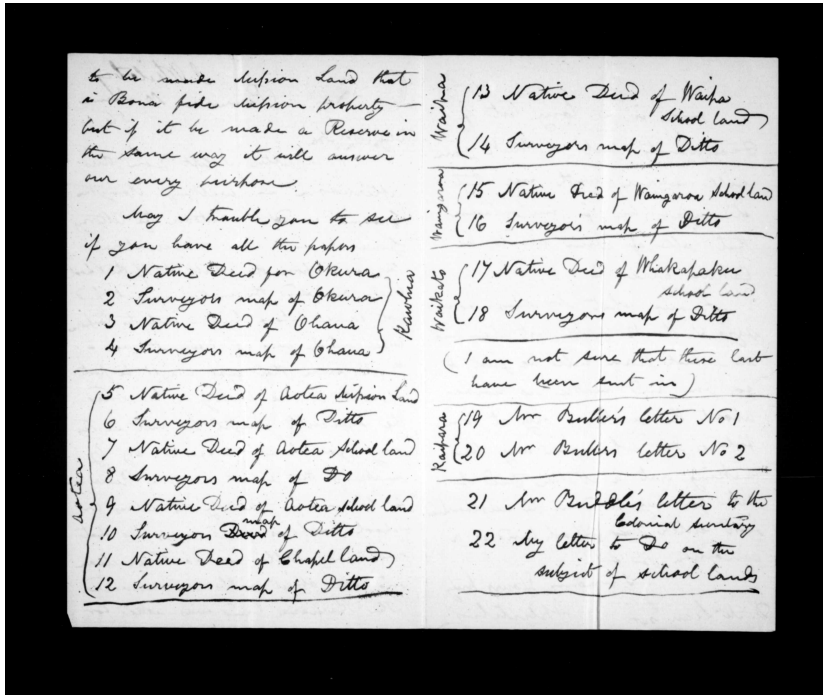 to be made Mission Land that
is Bona fide Mission property —
but if it be made a Reserve in
the same way it will answer
our every purpose.
May I trouble you to see
if you have all the papers
1 Native Deed for Okura
2 Surveyors map of Okura
3 Native Deed of Ohaua
4 Surveyors map of Ohaua
Kawhia
5 Native Deed of Aotea Mission Land
6 Surveyors map of Ditto
7 Native Deed of Aotea School land
8 Surveyors map of Do
9 Native Deed of Aotea School land
10 Surveyors Deed map of Ditto
11 Native Deed of Chapel land
12 Surveyors map of Ditto
Aotea
Waipa
13 Native Deed of Waipa
School land
14 Surveyors map of Ditto
Waingaroa
15 Native Deed of Waingaroa School land
16 Surveyor's map of Ditto
Waikato
17 Native Deed of Whakapaku
School land
18 Surveyors map of Ditto
(I am not sure that these last
have been sent in)
Kaipara
19 Mr Buller's letter No 1
20 Mr Bullers letter No 2
21 Mr Buddle's letter to the
Colonial secretary
22 My letter to Do on the
subject of school lands